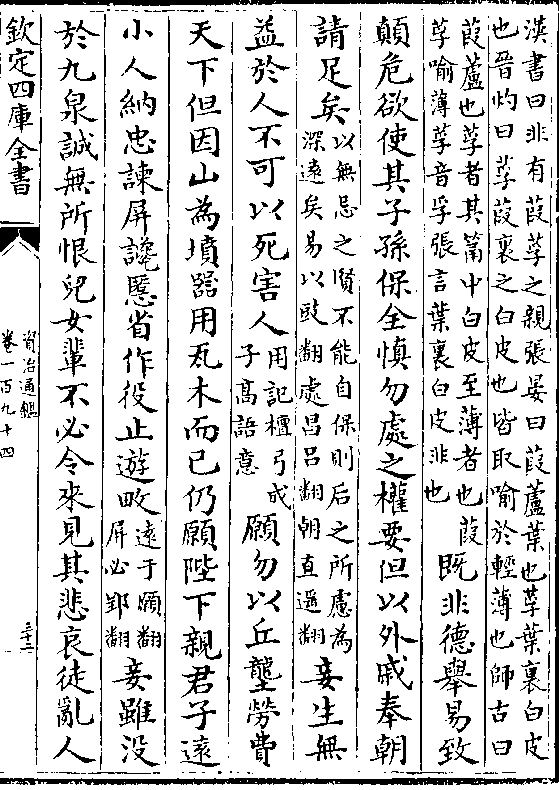 漢書曰非有葭莩之親張晏曰葭蘆葉也莩葉裏白皮
也晉灼曰莩葭裏之白皮也皆取喻於輕薄也師古曰
葭蘆也莩者其筩中白皮至薄者也葭
莩喻薄莩音孚張言葉裏白皮非也
既非德舉易致
顛危欲使其子孫保全慎勿處之權要但以外戚奉朝
請足矣
以無忌之賢不能自保則后之所慮為
深遠矣易以豉翻處昌呂翻朝直遥翻
妾生無
益於人不可以死害人
用記檀弓成
子高語意
願勿以丘壟勞費
天下但因山為墳器用瓦木而已仍願陛下親君子遠
小人納忠諫屏讒慝省作役止遊畋
遠于願翻
屏必郢翻
妾雖没
於九泉誠無所恨兒女輩不必令來見其悲哀徒亂人
欽定四庫全書
資治通鑑
卷一百九十四
三十二